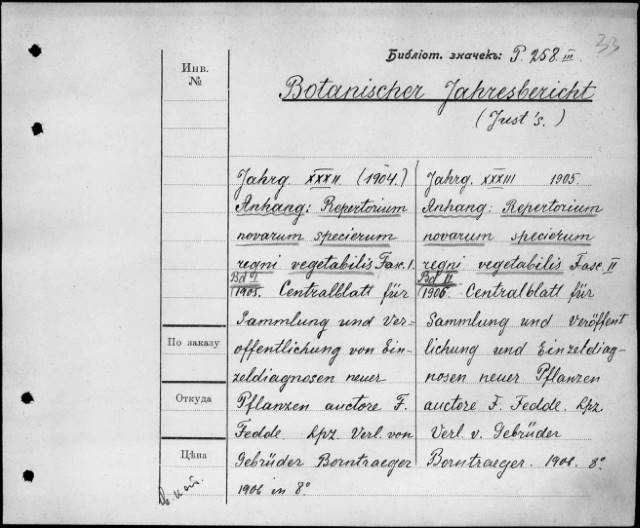 33
Библіот. значекъ: P. 258. III
Инв.
№
Botanischer Jahresbericht
(Just's.)
Jahrg. XXXII. (1904.)
Anhang: Repertorium
novarum specierum
regni vegetabilis Fasc. I.
Bd I.
1905. Centralblatt für
Sammlung und Ver=
offentlichung von Ein=
zeldiagnosen neuer
Pflanzen auctore F.
Fedde. Lpz. Verl. von
Gebrüder Borntraeger
1906 in 8°
Jahrg. XXXIII 1905.
Anhang: Repertorium
novarum specierum
regni vegetabilis Fasc. II
Bd II.
1906. Centralblatt für
Sammlung und Veröffent
lichung und Einzeldiag-
nosen neuer Pflanzen
auctore F. Fedde. Lpz
Verl. v. Gebrüder
Borntraeger. 1906. 8°
По заказу
Откуда
Цѣна